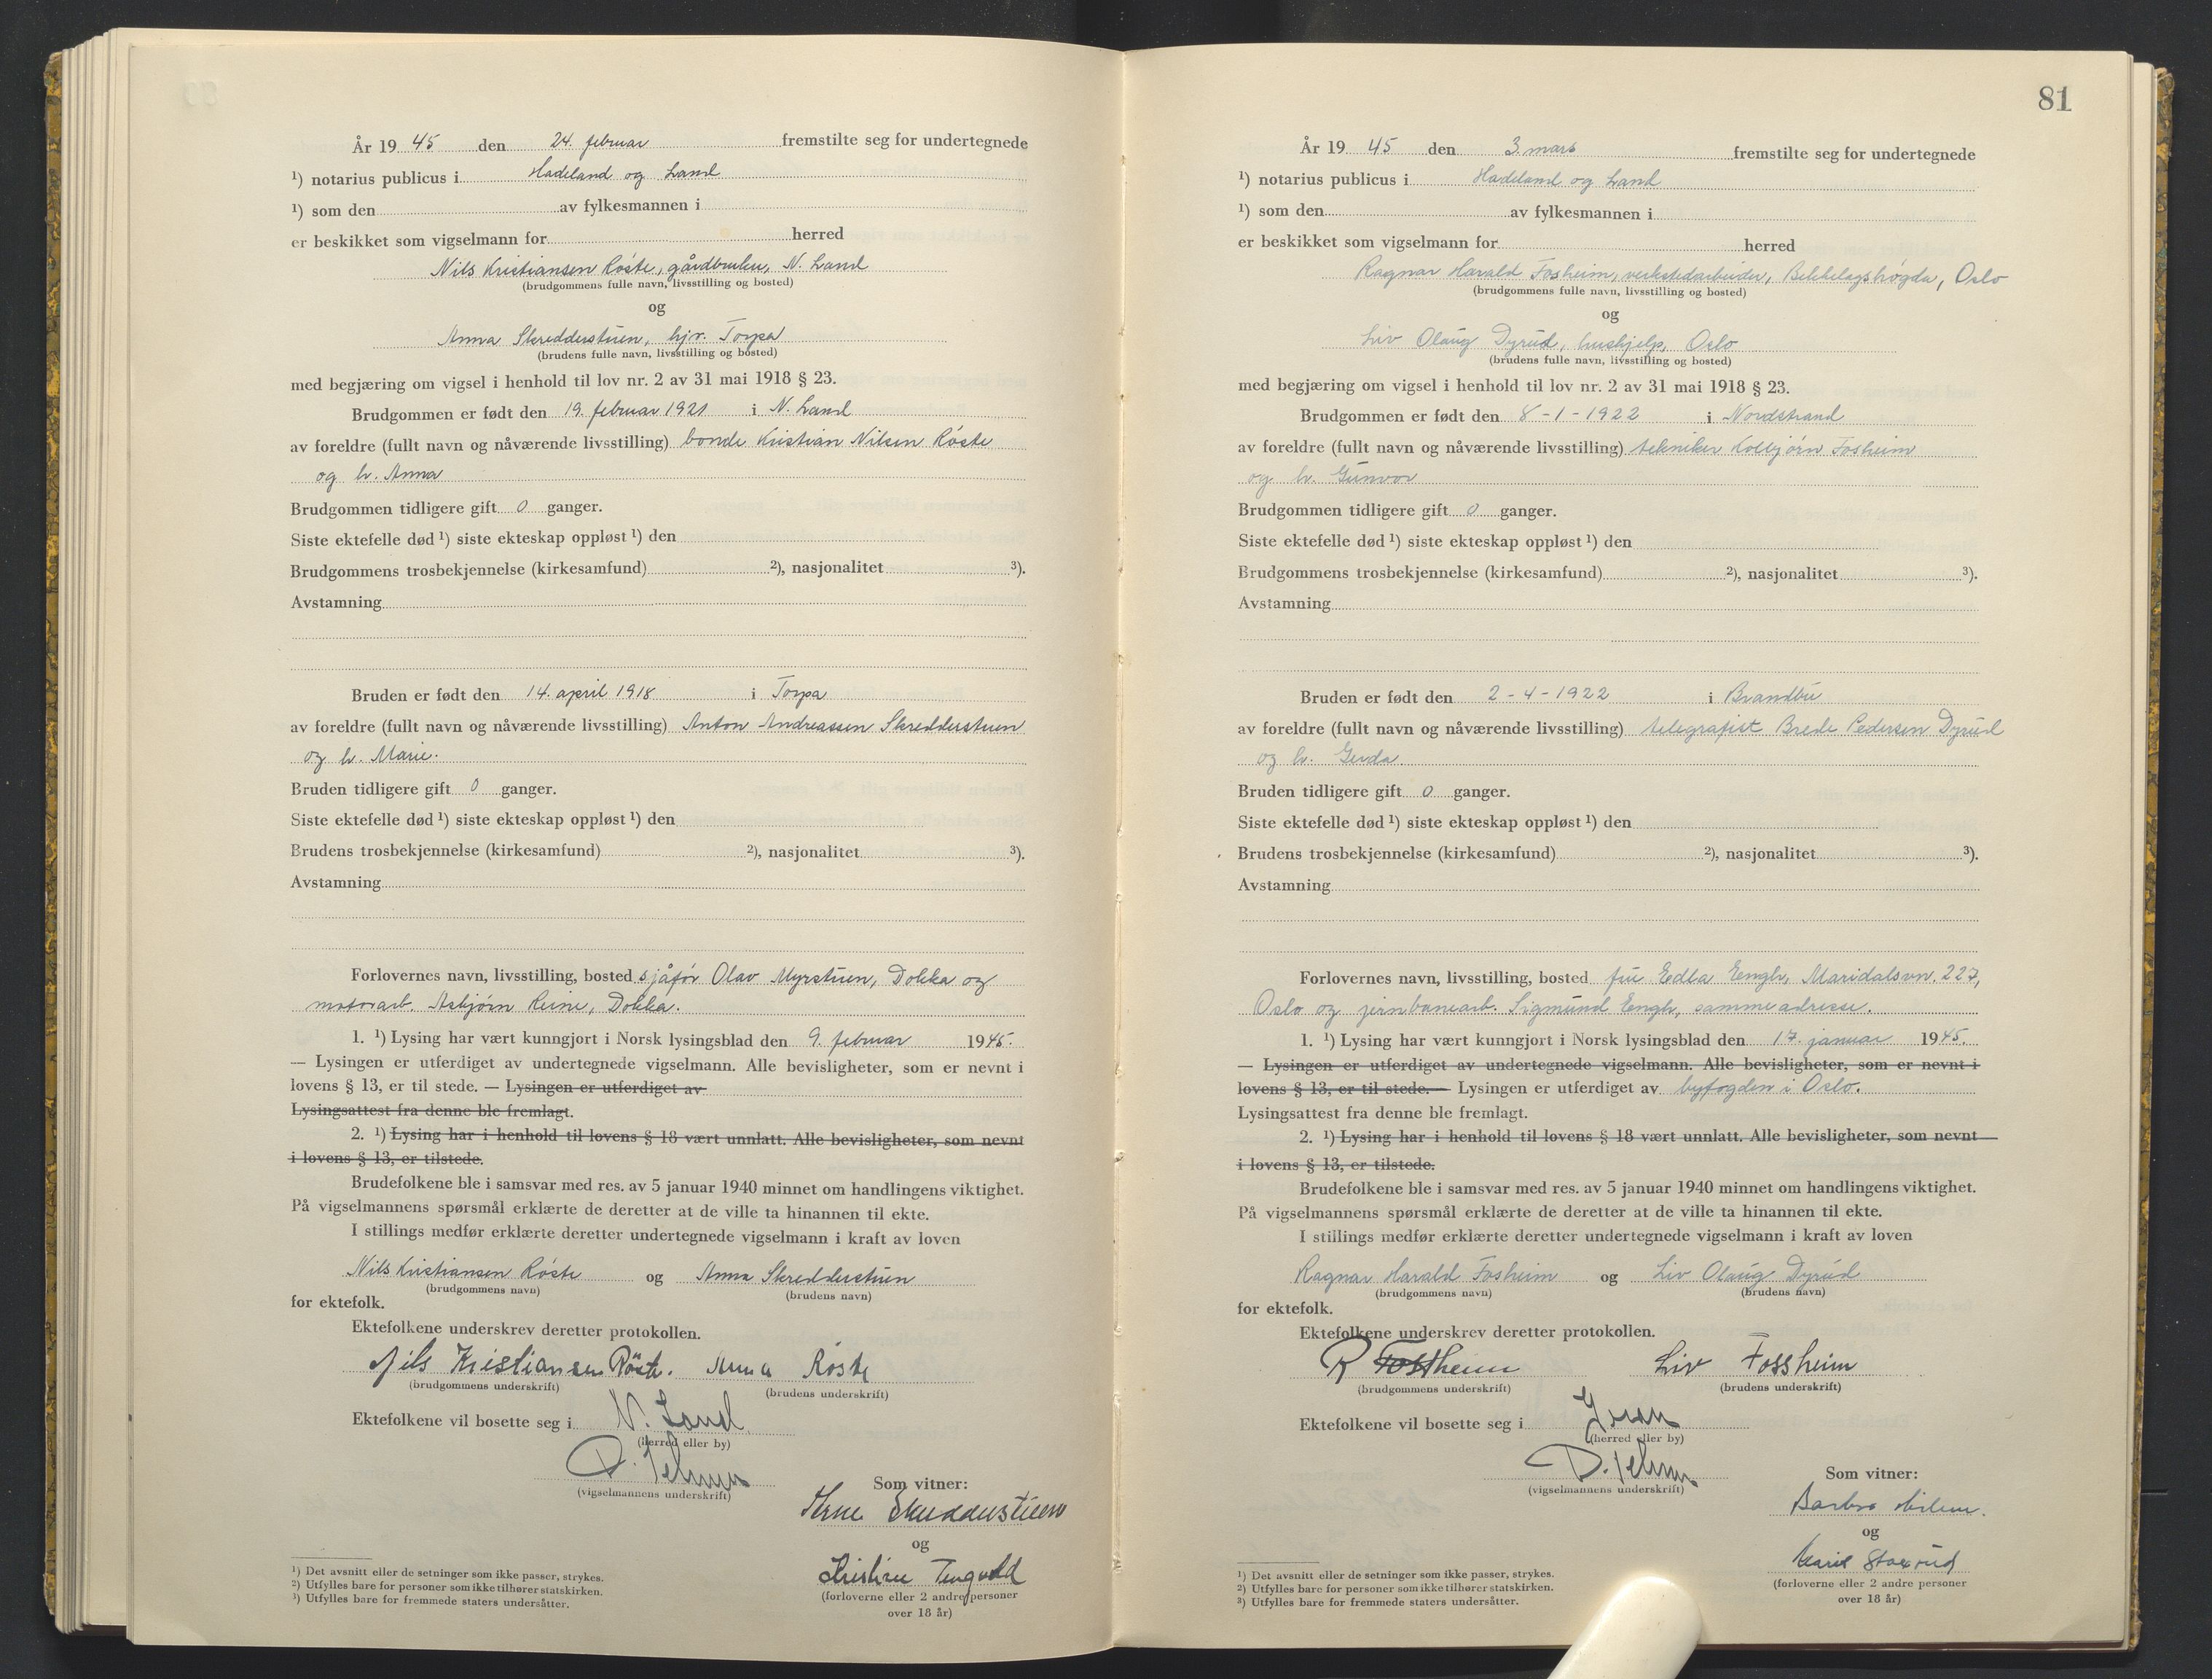 År 19 45 den 24. februar fremstilte seg for undertegnede
¹) notarius publicus i Hadeland og Land
¹) som den av fylkesmannen i
er beskikket som vigselmann for herred
Nils Kristiansen Röste, gårdbruker, N. Land
(brudgommens fulle navn, livsstilling og bosted)
og
Anna Skredderstuen, hjv. Torpa
(brudens fulle navn, livsstilling og bosted)
med begjæring om vigsel i henhold til lov nr. 2 av 31 mai 1918 § 23.
Brudgommen er født den 19. februar 1921 i N. Land
av foreldre (fullt navn og nåværende livsstilling) bonde Kristian Nilsen Röste
og h. Anna
Brudgommen tidligere gift 0 ganger.
Siste ektefelle død ¹) siste ekteskap oppløst ¹) den
Brudgommens trosbekjennelse (kirkesamfund) ²), nasjonalitet ³).
Avstamning
Bruden er født den 14. april 1918 i Torpa
av foreldre (fullt navn og nåværende livsstilling) Anton Andreassen Skredderstuen
og h. Marie.
Bruden tidligere gift 0 ganger.
Siste ektefelle død ¹) siste ekteskap oppløst ¹) den
Brudens trosbekjennelse (kirkesamfund) ²), nasjonalitet ³).
Avstamning
Forlovernes navn, livsstilling, bosted sjåför Olav Myrstuen, Dokka og
motorarb. Asbjörn Reine, Dokka.
1. ¹) Lysing har vært kunngjort i Norsk lysingsblad den 9. februar 1945.
— Lysingen er utferdiget av undertegnede vigselmann. Alle bevisligheter, som er nevnt i
lovens § 13, er til stede. — Lysingen er utferdiget av
Lysingsattest fra denne ble fremlagt.
2. ¹) Lysing har i henhold til lovens § 18 vært unnlatt. Alle bevisligheter, som nevnt
i lovens § 13, er tilstede.
Brudefolkene ble i samsvar med res. av 5 januar 1940 minnet om handlingens viktighet.
På vigselmannens spørsmål erklærte de deretter at de ville ta hinannen til ekte.
I stillings medfør erklærte deretter undertegnede vigselmann i kraft av loven
Nils Kristiansen Röste og Anna Skredderstuen
(brudgommens navn) (brudens navn)
for ektefolk.
Ektefolkene underskrev deretter protokollen.
Nils Kristiansen Röste. Anna Röste
(brudgommens underskrift) (brudens underskrift)
Ektefolkene vil bosette seg i N. Land
(herred eller by)
(vigselmannens underskrift)
Som vitner:
Skredderstuen
og
Kristine Tingvold
(forloverne eller 2 andre personer
over 18 år)
¹) Det avsnitt eller de setninger som ikke passer, strykes.
²) Utfylles bare for personer som ikke tilhører statskirken.
³) Utfylles bare for fremmede staters undersåtter.
81
År 19 45 den 3. mars fremstilte seg for undertegnede
¹) notarius publicus i Hadeland og Land
¹) som den av fylkesmannen i
er beskikket som vigselmann for herred
Ragnar Harald Fosheim, verkstedarbeider, Bekkelagshögda, Oslo
(brudgommens fulle navn, livsstilling og bosted)
og
Liv Olaug Dyrud, hushjelp, Oslo
(brudens fulle navn, livsstilling og bosted)
med begjæring om vigsel i henhold til lov nr. 2 av 31 mai 1918 § 23.
Brudgommen er født den 8-1-1922 i Nordstrand
av foreldre (fullt navn og nåværende livsstilling) tekniker Kolbjörn Fosheim
og h. Gunvor
Brudgommen tidligere gift 0 ganger.
Siste ektefelle død ¹) siste ekteskap oppløst ¹) den
Brudgommens trosbekjennelse (kirkesamfund) ²), nasjonalitet ³).
Avstamning
Bruden er født den 2-4-1922 i Brandbu
av foreldre (fullt navn og nåværende livsstilling) telegrafist Brede Pedersen Dyrud
og h. Gerda
Bruden tidligere gift 0 ganger.
Siste ektefelle død ¹) siste ekteskap oppløst ¹) den
Brudens trosbekjennelse (kirkesamfund) ²), nasjonalitet ³).
Avstamning
Forlovernes navn, livsstilling, bosted fru Edla Eengh, Maridalsvn. 227,
Oslo og jernbanearb. Sigmund Eengh, samme adresse.
1. ¹) Lysing har vært kunngjort i Norsk lysingsblad den 17. januar 1945.
— Lysingen er utferdiget av undertegnede vigselmann. Alle bevisligheter, som er nevnt i
lovens § 13, er til stede. — Lysingen er utferdiget av byfogden i Oslo.
Lysingsattest fra denne ble fremlagt.
2. ¹) Lysing har i henhold til lovens § 18 vært unnlatt. Alle bevisligheter, som nevnt
i lovens § 13, er tilstede.
Brudefolkene ble i samsvar med res. av 5 januar 1940 minnet om handlingens viktighet.
På vigselmannens spørsmål erklærte de deretter at de ville ta hinannen til ekte.
I stillings medfør erklærte deretter undertegnede vigselmann i kraft av loven
Ragnar Harald Fosheim og Liv Olaug Dyrud
(brudgommens navn) (brudens navn)
for ektefolk.
Ektefolkene underskrev deretter protokollen.
R Fossheim Liv Fossheim
(brudgommens underskrift) (brudens underskrift)
Ektefolkene vil bosette seg i Gran
(herred eller by)
(vigselmannens underskrift)
Som vitner:
Barbro
og
Marie Staxrud
(forloverne eller 2 andre personer
over 18 år)
¹) Det avsnitt eller de setninger som ikke passer, strykes.
²) Utfylles bare for personer som ikke tilhører statskirken.
³) Utfylles bare for fremmede staters undersåtter.